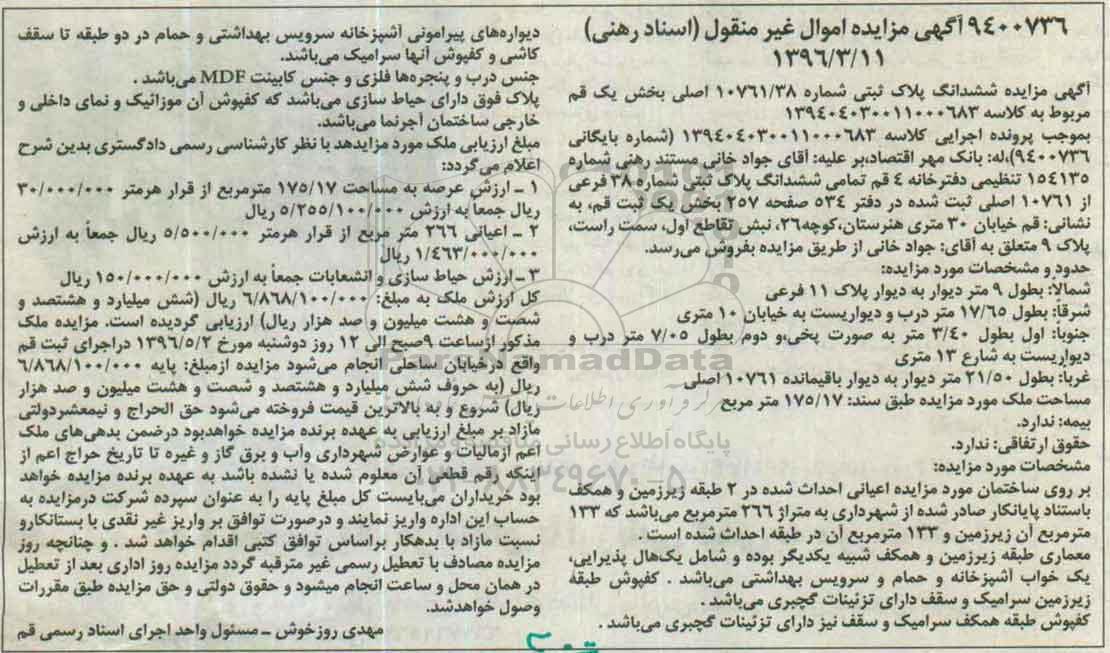 ۹۴۰۰۷۳۶ آگهی مزایده اموال غیر منقول (اسناد رهنی)
۱۳۹۶/۳/۱۱
آگهی مزایده ششدانگ پلاک ثبتی شماره ۱۰۷۶۱/۳۸ اصلی بخش یک قم
مربوط به کلاسه ۱۳۹۴۰۴۰۳۰۰۱۱۰۰۰۶۸۳
بموجب پرونده اجرایی کلاسه ۱۳۹۴۰۴۰۳۰۰۱۱۰۰۰۶۸۳ (شماره بایگانی
۹۴۰۰۷۳۶)،له: بانک مهر اقتصاد،بر علیه: آقای جواد خانی مستند رهنی شماره
۱۵۴۱۳۵ تنظیمی دفترخانه ۴ قم تمامی ششدانگ پلاک ثبتی شماره ۳۸ فرعی
از ۱۰۷۶۱ اصلی ثبت شده در دفتر ۵۳۴ صفحه ۲۵۷ بخش یک ثبت قم، به
نشانی: قم خیابان ۳۰ متری هنرستان،کوچه۲۶، نبش تقاطع اول، سمت راست،
پلاک ۹ متعلق به آقای: جواد خانی از طریق مزایده بفروش می‌رسد.
حدود و مشخصات مورد مزایده:
شمالاً: بطول ۹ متر دیوار به دیوار پلاک ۱۱ فرعی
شرقاً: بطول ۱۷/۶۵ متر درب و دیواریست به خیابان ۱۰ متری
جنوبا: اول بطول ۳/۴۰ متر به صورت پخی،و دوم بطول ۷/۰۵ متر درب و
دیواریست به شارع ۱۳ متری
غربا: بطول ۲۱/۵۰ متر دیوار به دیوار باقیمانده ۱۰۷۶۱ اصلی
مساحت ملک مورد مزایده طبق سند: ۱۷۵/۱۷ متر مربع
بیمه: ندارد.
حقوق ارتفاقی: ندارد.
مشخصات مورد مزایده:
بر روی ساختمان مورد مزایده اعیانی احداث شده در ۲ طبقه زیرزمین و همکف
باستناد پایانکار صادر شده از شهرداری به متراژ ۲۶۶ مترمربع می‌باشد که ۱۳۳
مترمربع آن زیرزمین و ۱۳۳ مترمربع آن در طبقه احداث شده است .
معماری طبقه زیرزمین و همکف شبیه یکدیگر بوده و شامل یک‌هال پذیرایی،
یک خواب آشپزخانه و حمام و سرویس بهداشتی می‌باشد . کفپوش طبقه
زیرزمین سرامیک و سقف دارای تزئینات گچبری می‌باشد .
کفپوش طبقه همکف سرامیک و سقف نیز دارای تزئینات گچبری می‌باشد .
دیواره‌های پیرامونی آشپزخانه سرویس بهداشتی و حمام در دو طبقه تا سقف
کاشی و کفپوش آنها سرامیک می‌باشد.
جنس درب و پنجره‌ها فلزی و جنس کابینت MDF می‌باشد .
پلاک فوق دارای حیاط سازی می‌باشد که کفپوش آن موزائیک و نمای داخلی و
خارجی ساختمان آجرنما می‌باشد.
مبلغ ارزیابی ملک مورد مزایدهد با نظر کارشناسی رسمی دادگستری بدین شرح
اعلام می‌گردد:
۱ ـ ارزش عرصه به مساحت ۱۷۵/۱۷ مترمربع از قرار هرمتر ۳۰/۰۰۰/۰۰۰
ریال جمعاً به ارزش ۵/۲۵۵/۱۰۰/۰۰۰ ریال
۲ ـ اعیانی ۲۶۶ متر مربع از قرار هرمتر ۵/۵۰۰/۰۰۰ ریال جمعاً به ارزش
۱/۴۶۳/۰۰۰/۰۰۰ ریال
۳ ـ ارزش حیاط سازی و انشعابات جمعاً به ارزش ۱۵۰/۰۰۰/۰۰۰ ریال
کل ارزش ملک به مبلغ: ۶/۸۶۸/۱۰۰/۰۰۰ ریال (شش میلیارد و هشتصد و
شصت و هشت میلیون و صد هزار ریال) ارزیابی گردیده است. مزایده ملک
مذکور ازساعت ۹صبح الی ۱۲ روز دوشنبه مورخ ۱۳۹۶/۵/۲ دراجرای ثبت قم
واقع درخیابان ساحلی انجام می‌شود مزایده ازمبلغ: پایه ۶/۸۶۸/۱۰۰/۰۰۰
ریال (به حروف شش میلیارد و هشتصد و شصت و هشت میلیون و صد هزار
ریال) شروع و به بالاترین قیمت فروخته می‌شود حق الحراج و نیمعشردولتی
مازاد بر مبلغ ارزیابی به عهده برنده مزایده خواهدبود درضمن بدهی‌های ملک
اعم ازمالیات و عوارض شهرداری واب و برق گاز و غیره تا تاریخ حراج اعم از
اینکه رقم قطعی آن معلوم شده یا نشده باشد به عهده برنده مزایده خواهد
بود خریداران می‌بایست کل مبلغ پایه را به عنوان سپرده شرکت درمزایده به
حساب این اداره واریز نمایند و درصورت توافق بر واریز غیر نقدی با بستانکارو
نسبت مازاد با بدهکار براساس توافق کتبی اقدام خواهد شد . و چنانچه روز
مزایده مصادف با تعطیل رسمی غیر مترقبه گردد مزایده روز اداری بعد از تعطیل
در همان محل و ساعت انجام میشود و حقوق دولتی و حق مزایده طبق مقررات
وصول خواهدشد.
مهدی روزخوش ـ مسئول واحد اجرای اسناد رسمی قم
ParsNamadData
پایگاه اطلاع رسانی مناقصه و مزایده
۰۲۱-۸۸۳۴۹۶۷۰-۵